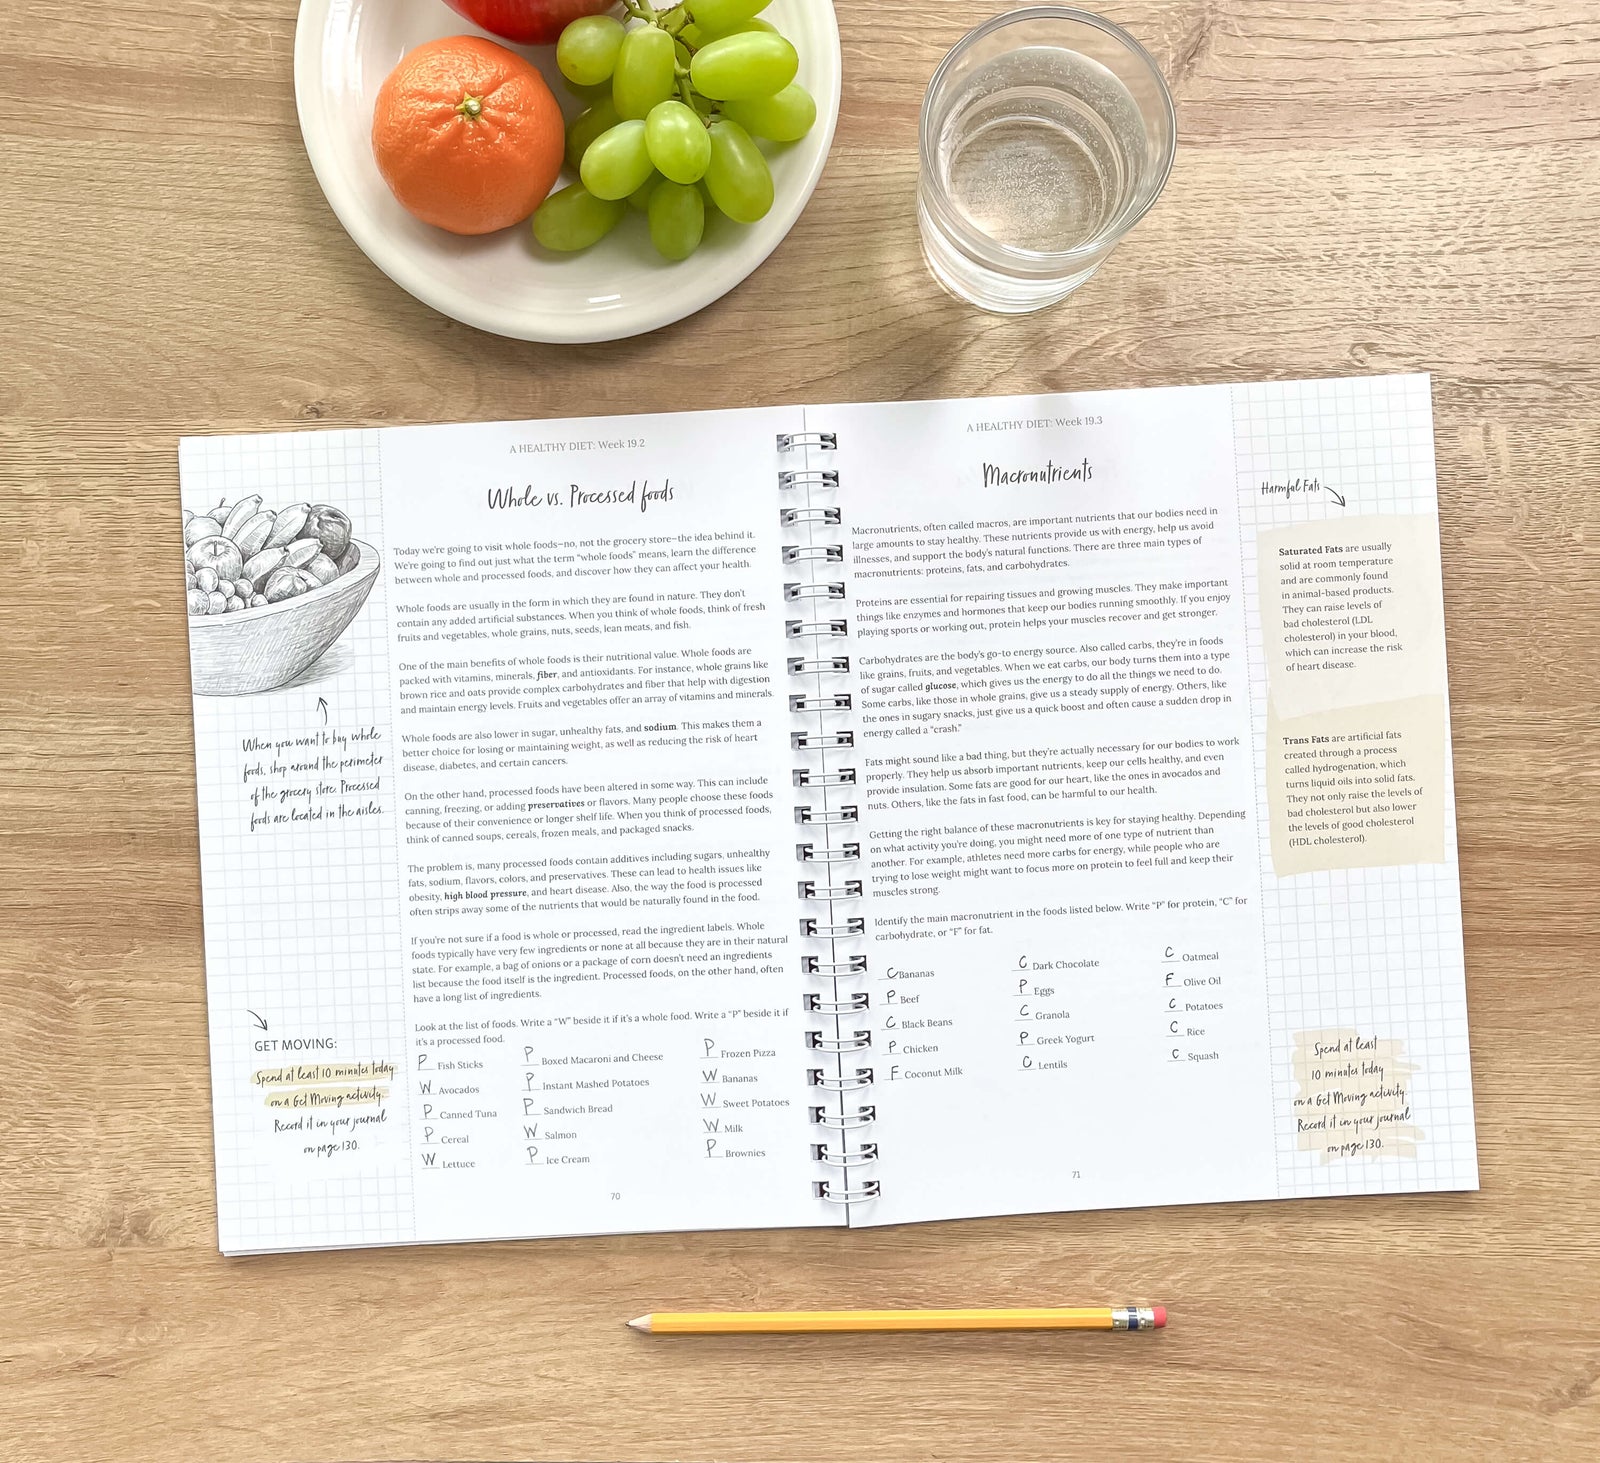 A HEALTHY DIET: Week 19.2
Whole vs. Processed foods
Today we're going to visit whole foods—no, not the grocery store—the idea behind it.
We're going to find out just what the term "whole foods" means, learn the difference
between whole and processed foods, and discover how they can affect your health.
Whole foods are usually in the form in which they are found in nature. They don't
contain any added artificial substances. When you think of whole foods, think of fresh
fruits and vegetables, whole grains, nuts, seeds, lean meats, and fish.
One of the main benefits of whole foods is their nutritional value. Whole foods are
packed with vitamins, minerals, fiber, and antioxidants. For instance, whole grains like
brown rice and oats provide complex carbohydrates and fiber that help with digestion
and maintain energy levels. Fruits and vegetables offer an array of vitamins and minerals.
Whole foods are also lower in sugar, unhealthy fats, and sodium. This makes them a
better choice for losing or maintaining weight, as well as reducing the risk of heart
disease, diabetes, and certain cancers.
On the other hand, processed foods have been altered in some way. This can include
canning, freezing, or adding preservatives or flavors. Many people choose these foods
because of their convenience or longer shelf life. When you think of processed foods,
think of canned soups, cereals, frozen meals, and packaged snacks.
The problem is, many processed foods contain additives including sugars, unhealthy
fats, sodium, flavors, colors, and preservatives. These can lead to health issues like
obesity, high blood pressure, and heart disease. Also, the way the food is processed
often strips away some of the nutrients that would be naturally found in the food.
If you're not sure if a food is whole or processed, read the ingredient labels. Whole
foods typically have very few ingredients or none at all because they are in their natural
state. For example, a bag of onions or a package of corn doesn't need an ingredients
list because the food itself is the ingredient. Processed foods, on the other hand, often
have a long list of ingredients.
Look at the list of foods. Write a "W" beside it if it's a whole food. Write a "P" beside it if
it's a processed food.
P Fish Sticks
W Avocados
P Canned Tuna
P Cereal
W Lettuce
P Boxed Macaroni and Cheese
P Instant Mashed Potatoes
P Sandwich Bread
W Salmon
P Ice Cream
P Frozen Pizza
W Bananas
W Sweet Potatoes
W Milk
P Brownies
70
When you want to buy whole
foods, shop around the perimeter
of the grocery store. Processed
foods are located in the aisles.
GET MOVING:
Spend at least 10 minutes today
on a Get Moving activity.
Record it in your journal
on page 130.
A HEALTHY DIET: Week 19.3
Macronutrients
Macronutrients, often called macros, are important nutrients that our bodies need in
large amounts to stay healthy. These nutrients provide us with energy, help us avoid
illnesses, and support the body's natural functions. There are three main types of
macronutrients: proteins, fats, and carbohydrates.
Proteins are essential for repairing tissues and growing muscles. They make important
things like enzymes and hormones that keep our bodies running smoothly. If you enjoy
playing sports or working out, protein helps your muscles recover and get stronger.
Carbohydrates are the body's go-to energy source. Also called carbs, they're in foods
like grains, fruits, and vegetables. When we eat carbs, our body turns them into a type
of sugar called glucose, which gives us the energy to do all the things we need to do.
Some carbs, like those in whole grains, give us a steady supply of energy. Others, like
the ones in sugary snacks, just give us a quick boost and often cause a sudden drop in
energy called a "crash."
Fats might sound like a bad thing, but they're actually necessary for our bodies to work
properly. They help us absorb important nutrients, keep our cells healthy, and even
provide insulation. Some fats are good for our heart, like the ones in avocados and
nuts. Others, like the fats in fast food, can be harmful to our health.
Getting the right balance of these macronutrients is key for staying healthy. Depending
on what activity you're doing, you might need more of one type of nutrient than
another. For example, athletes need more carbs for energy, while people who are
trying to lose weight might want to focus more on protein to feel full and keep their
muscles strong.
Identify the main macronutrient in the foods listed below. Write "P" for protein, "C" for
carbohydrate, or "F" for fat.
C Bananas
P Beef
C Black Beans
P Chicken
F Coconut Milk
C Dark Chocolate
P Eggs
C Granola
P Greek Yogurt
C Lentils
C Oatmeal
F Olive Oil
C Potatoes
C Rice
C Squash
71
Harmful Fats
Saturated Fats are usually
solid at room temperature
and are commonly found
in animal-based products.
They can raise levels of
bad cholesterol (LDL
cholesterol) in your blood,
which can increase the risk
of heart disease.
Trans Fats are artificial fats
created through a process
called hydrogenation, which
turns liquid oils into solid fats.
They not only raise the levels of
bad cholesterol but also lower
the levels of good cholesterol
(HDL cholesterol).
Spend at least
10 minutes today
on a Get Moving activity.
Record it in your journal
on page 130.